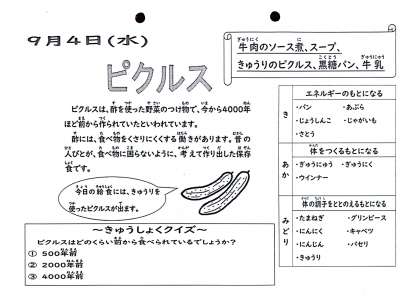 9月4日(水)
牛肉のソース煮、スープ、
きゅうりのピクルス、黒糖パン、牛乳
ピクルス
ピクルスは、酢を使った野菜のつけ物で、今から4000年
ほど前から作られていたといわれています。
酢には、食べ物をくさりにくくする働きがあります。昔の
人びとが、食べ物に困らないように、考えて作り出した保存
食です。
今日の給食には、きゅうりを
使ったピクルスが出ます。
～きゅうしょくクイズ～
ピクルスはどのくらい前から食べられているでしょうか？
① 500年前
② 2000年前
③ 4000年前
き
エネルギーのもとになる
・パン ・あぶら
・じょうしんこ ・じゃがいも
・さとう
あか
体をつくるもとになる
・ぎゅうにゅう ・ぎゅうにく
・ウインナー
みどり
体の調子をととのえるもとになる
・たまねぎ ・グリンピース
・にんにく ・キャベツ
・にんじん ・パセリ
・きゅうり